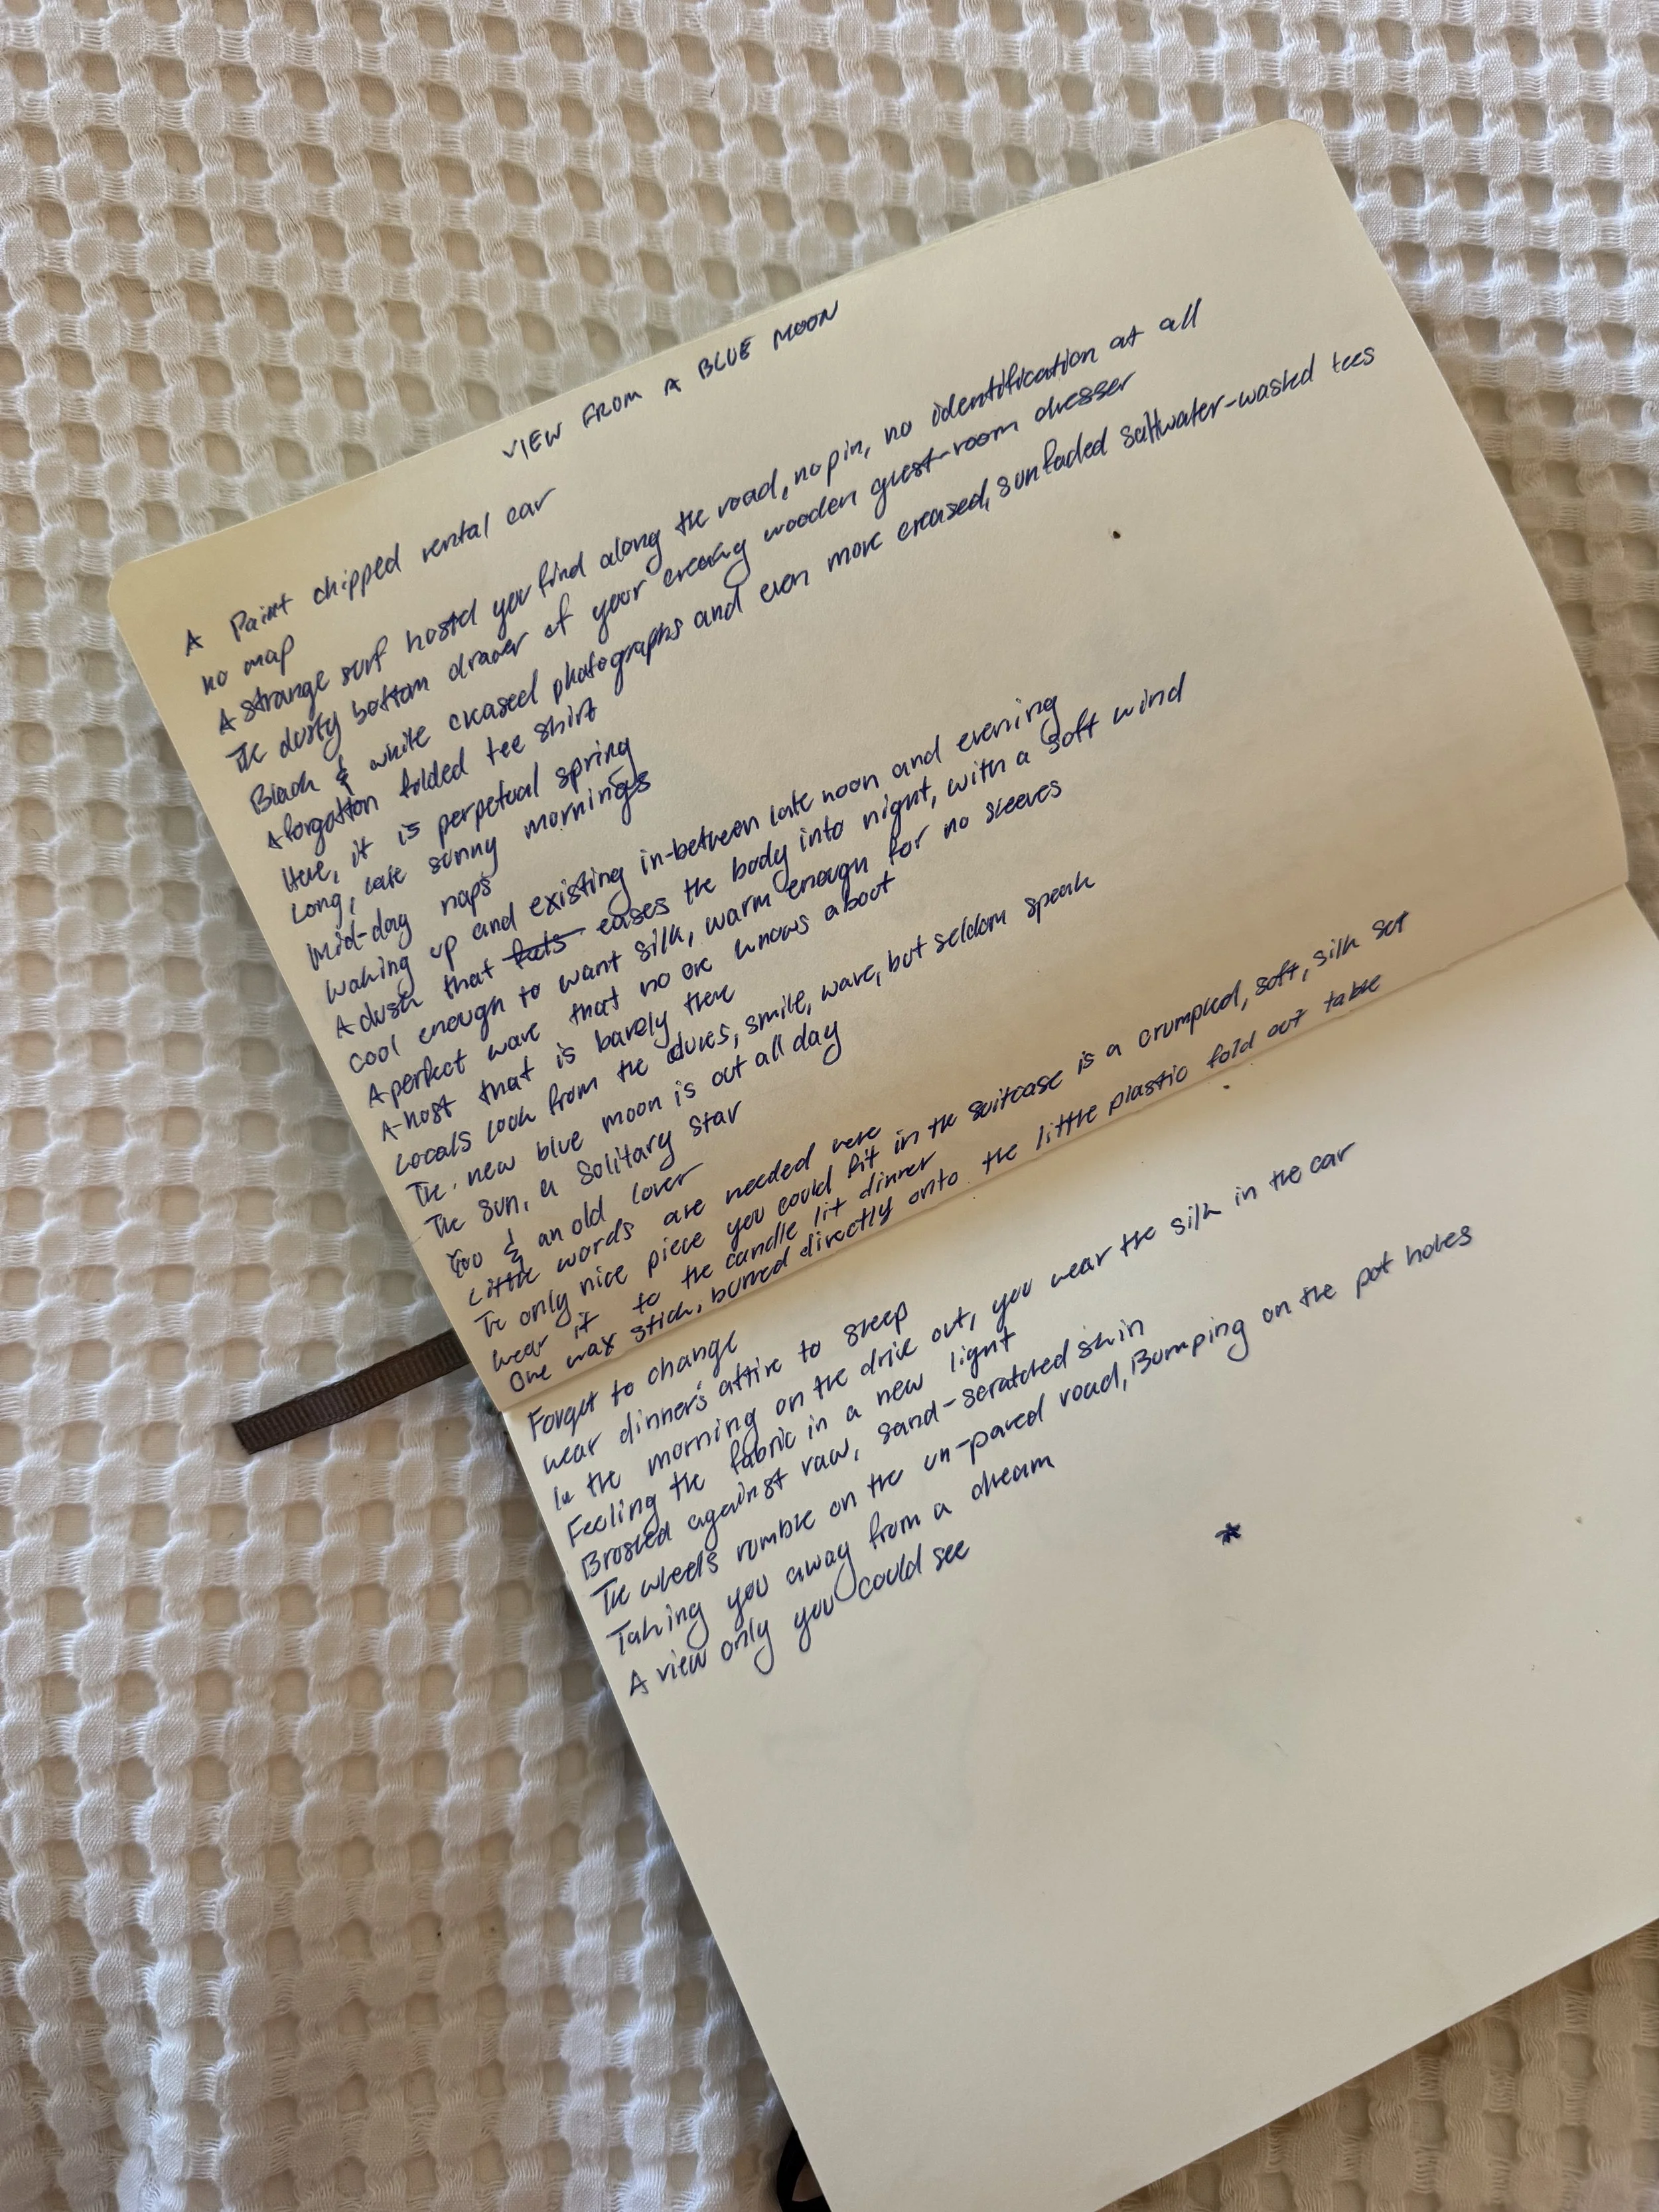 VIEW FROM A BLUE MOON
A Paint chipped rental car
no map
A strange surf hostel you find along the road, no pin, no identification at all
The dusty bottom drawer of your creaky wooden guest-room dresser
Black & white creased photographs and even more creased, sunfaded saltwater-washed tees
A forgotton folded tee shirt
Here, it is perpetual spring
Long, late sunny mornings
Mid-day naps
Waking up and existing in-between late noon and evening
A dusk that eases the body into night, with a soft wind
Cool enough to want silk, warm enough for no sleeves
A perfect wave that no one knows about
A host that is barely there
Locals look from the dunes, smile, wave, but seldom speak
The new blue moon is out all day
The sun, a solitary star
You & an old lover
Little words are needed here
The only nice piece you could fit in the suitcase is a crumpled, soft, silk set
Wear it to the candle lit dinner
One wax stick, burned directly onto the little plastic fold out table
Forget to change
Wear dinner's attire to sleep
In the morning on the drive out, you wear the silk in the car
Feeling the fabric in a new light
Brushed against raw, sand-scratched skin
The wheels rumble on the un-paved road, Bumping on the pot holes
Taking you away from a dream
A view only you could see
*